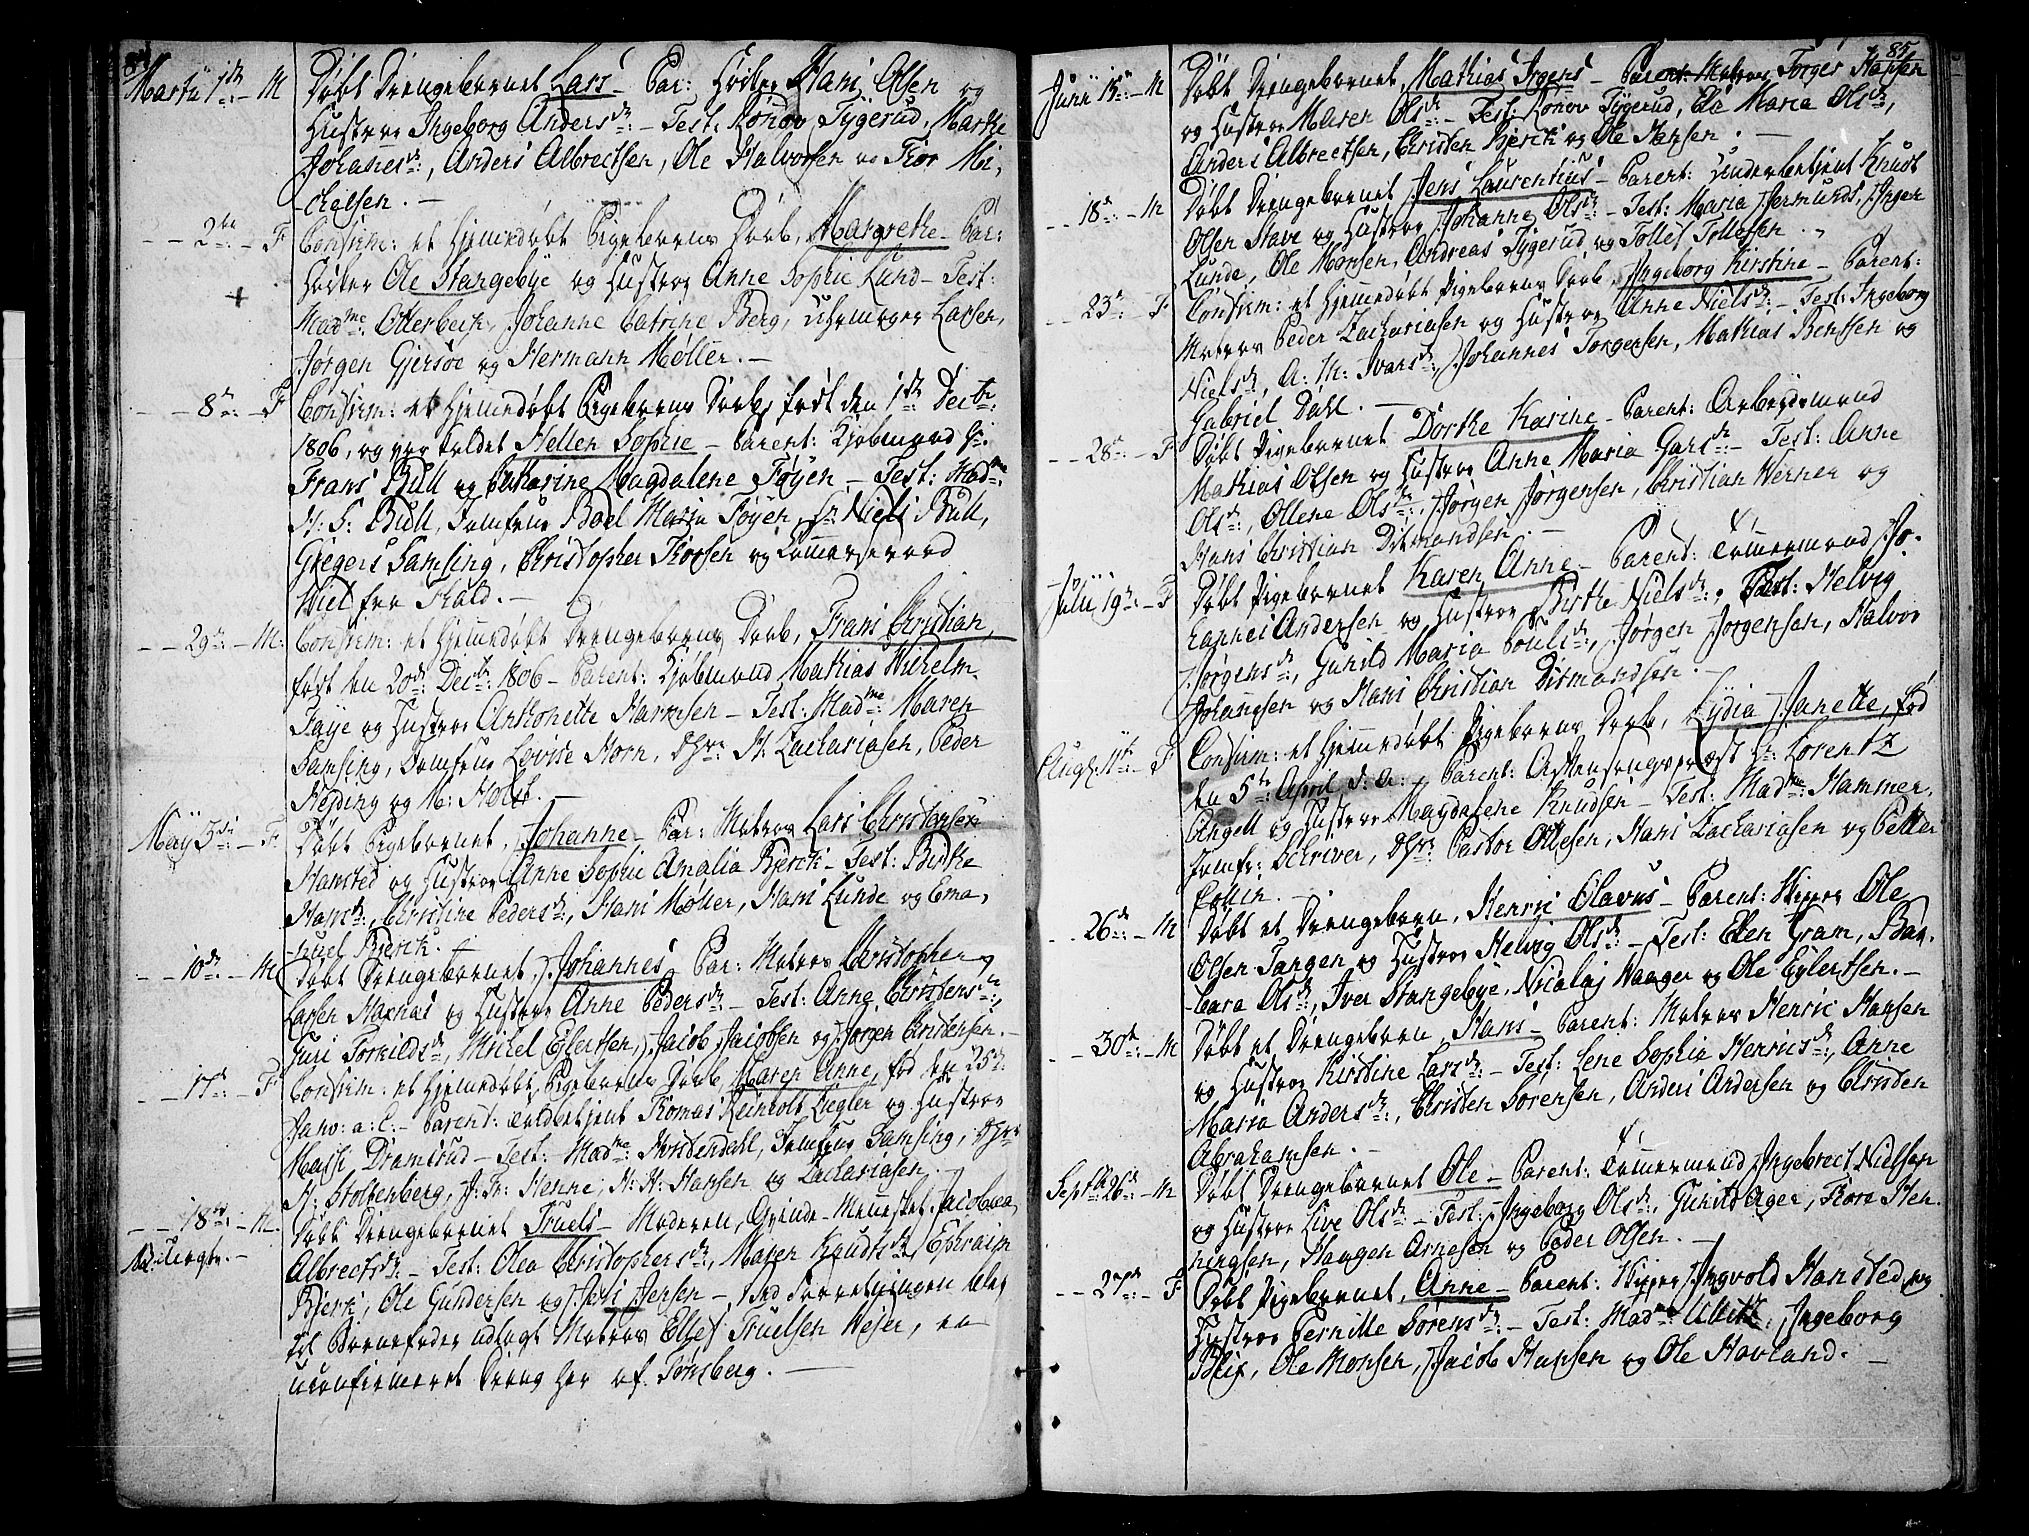 84
Martii 1ste – M Döbt Drengebarnet Lars – Par: Höcker Hans Olsen og
Hustrue Ingeborg Andersdr: – Test: Rönov Tygerud, Marthe
Johanesdr:, Anders Albrectsen, Ole Halvorsen og Thor Mi,
chelsen. –
– – 2den – F Confirm: et hjemedöbt Pigebarns Daab, Margrethe – Par:
Höcker Ole Stangebye og Hustrue Anne Sophie Lund – Test:
+ Madme: Otterbech, Johanne Catrine Berg, Uhrmager Larsen,
Jörgen Gjersöe og Hermann Möller. –
– – 8de – F Confirm: et hjemedöbt Pigebarns Daab, födt den 1ste Decbr:
1806, og var kaldet Hellen Sophie – Parent: Kjöbmand Hr.
Frans Bull og Catharine Magdalene Föyen – Test: Madme:
N: S: Bull, Jomfrue Boel Maria Föyen, Hr: Niels Bull,
Gregers Samsing, Christopher Thorsen og
Wiel fra Hald. –
– – 29de – M: Confirm: et hjemedöbt Drengebarns Daab, Frans Christian,
födt den 20de Decbr: 1806 – Parent: Kjöbmand Mathias Wilhelm
Faye og Hustrue Anthonette Harmsen – Test: Madme: Maren
Samsing, Jomfrue Lovise Horn, Hrr: H: Zachariasen, Peder
Heyding og M: Holst. –
May 3die – F. Döbt Pigebarnet, Johanne – Par: Matros Lars Christensen
Hansted og Hustrue Anne Sophie Amalia Bjerck – Test: Birthe
Hansdr:, Christine Pedersdr:, Hans Möller, Hans Lunde og Ema,
nuel Bjerck. –
– – 10de – M Döbt Drengebarnet, Johannes, Par: Matros Christopher
Larsen Haxnas og Hustrue Anne Pedersdr – Test: Anne Christensdr:,
Guri Torkildsdr:, Michel Eilertsen, Jacob Jacobsen og Jörgen Christensen. –
– – 17de – F Confirm: et hjemedöbt Pigebarns Daab, Maren Anne, föd den 25de
Janv: a: c: – Parent: Toldbetjent Thomas Reinholt Ziegler og Hustrue
Massi Dramsrud – Test: Madme: Hvistendahl, Jomfrue Samsing, Hrr:
H: Stoltenberg, J: Fr: Henne, H: H: Hansen og Zachariasen. –
– – 18de – M. Döbt Drengebarnet Truels – Moderen, Qvinde-Mennesket Jacobea
NB: uægte. – Albrectsdr: – Test: Olea Christophersdr, Maren Knudtsdr, Ephraim
Bjerk, Ole Gundersen og Jens Jensen – Ved Forretningen blev
til Barnefader udlagt Matros Ellef Truelsen Vejer, en
uconfirmeret Dreng her af Tönsberg. –
85
Junii 15de – M Döbt Drengebarnet, Mathias Irgens – Parent: Matros Torger Hansen
og Hustrue Maren Olsdr – Test: Ronov Tygerud, Ela Maria Olsdr,
Anders Albrectsen, Christen Bjerck og Ole Hansen. –
– – 18de – M Döbt Drengebarnet Jens Laurentius – Parent: Underbetjent Knudt
Olsen Stave og Hustrue Johanne Olsdr – Test: Maria Jermunds, Inger
Lunde, Ole Monsen, Andreas Tygerud og Tollef Tollefsen. –
– – 23de – F Confirm: et hjemedöbt Pigebarns Daab, Ingeborg Kirstine – Parent:
Matros Peder Zachariasen og Hustrue Anne Nielsdr: – Test: Ingeborg
Nielsdr, A: M: Ivarsdr, Johannes Torgersen, Mathias Bentsen og
Gabriel Dahl. –
– – 28de – F Döbt Pigebarnet Dorthe Karine – Parent: Arbejdsmand
Mathias Olsen og Hustrue Anne Maria Garsdr – Test: Anne
Olsdr:, Ollene Olsdr:, Jörgen Jörgensen, Christian Werner og
Hans Christian Ditmandsen. –
Julii 19de – F Döbt Pigebarnet Karen Anne – Parent: Tömermand Jo,
hannes Andersen og Hustrue Birthe Nielsdr:, Test: Helvig
Jörgensdr:, Gunild Maria Poulsdr:, Jörgen Jörgensen, Halvor
Johannesen og Hans Christian Ditmandsen. –
Augst. 11te – F Confirm: et hjemedöbt Pigebarns Daab, Lydia Janette, föd
den 5te April d: a: – Parent: Aftensangspræst Hr: Lorentz
Angell og Hustrue Magdalene Knudsen – Test: Madme: Hammer,
Jomfr: Schriver, Hrr: Pastor Ottesen, Hans Zachariasen og Petter
Föllin. –
– – 26de – M Döbt et Drengebarn, Henric Olavus – Parent: Skipper Ole
Olsen Tangen og Hustrue Helvig Olsdr: – Test: Elen Gram, Bar,
bara Olsdr, Iver Stangebye, Nicolaj Haager og Ole Eylertsen. –
– – 30te – M Döbt et Drengebarn, Hans – Parent: Matros Henric Hansen
og Hustrue Kirstine Larsdr: – Test: Lene Sophie Henricsdr:, Anne
Maria Andersdr:, Christen Sörensen, Anders Andersen og Christen
Abrahamsen. –
Septbr: 26de – M Döbt Drengebarnet Ole – Parent: Tömermand Ingebrect Nielsen
og Hustrue Live Olsdr – Test: Ingeborg Olsdr, Gunild Ager, Thore Hen,
ningsen, Haagen Arnesen og Peder Olsen. –
– – 27de – F Döbt Pigebarnet, Anne – Parent: Skipper Ingvold Hansted og
Hustrue Pernille Sörensdr: – Test: Madme Ulvitz, Ingeborg
Blix, Ole Monsen, Jacob Hansen og Ole Havland. –